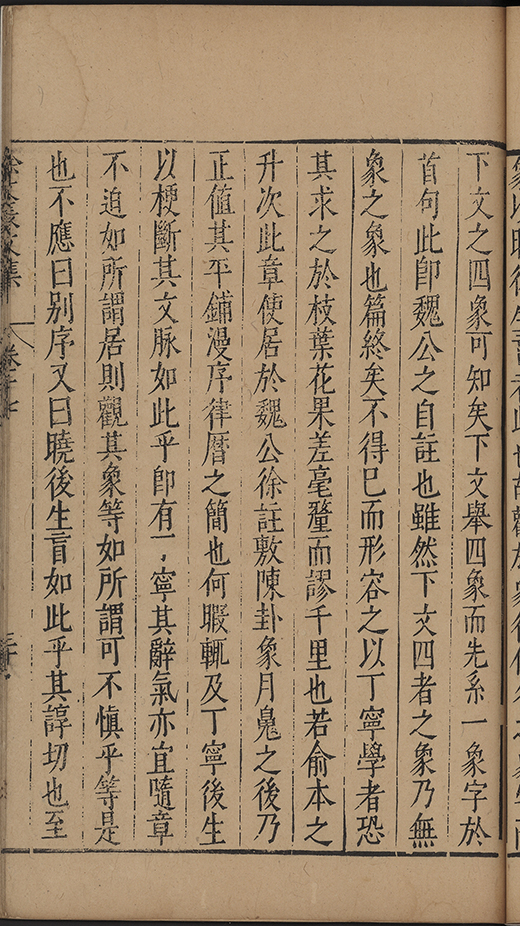 下文之四象可知矣下文舉四象而先系一象字於
首句此卽魏公之自註也雖然下文四者之象乃無
象之象也篇終矣不得已而形容之以丁寧學者恐
其求之於枝葉花果差毫釐而謬千里也若俞本之
升次此章使居於魏公徐註敷陳卦象月鬼之後乃
正值其平鋪漫序律曆之簡也何暇輒及丁寧後生
以梗斷其文脉如此乎卽有一丁寧其辭氣亦宜隨章
不迫如所謂居則觀其象等如所謂可不愼乎等是
也不應曰別序又曰曉後生盲如此乎其諄切也至
文集
卷